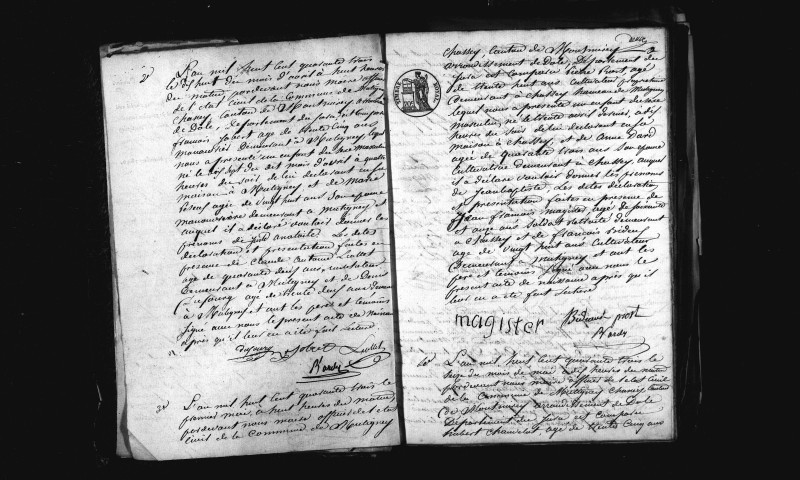 2e
L'an mil huit cent quarante trois
le dix huit du mois d'avril à huit heures
du matin, pardevant nous maire officier
de l'etat civil de la Commune de Mutigney
Chassey Canton de Montmirey arrondis
de Dole, departement du Jura est comparu
françois Jobret agé de trente cinq ans
manouvrier demeurant à Mutigney lequel
nous a presenté un enfant de sexe masculin
né le dix sept du dit mois d'avril à quatre
heures du soir de lui declarant en sa
maison à Mutigney et de Marie
agée de vingt huit ans Son epouse
manouvrière demeurant à mutigney et
auquel il a déclaré vouloir donner les
prénoms de anatoile Les dites
déclaration et présentation faites en
presence de Claude antoine Luillet
agé de quarante deux ans, instituteur
demeurant à Mutigney et de Denis
agé de trente deux ans demeurant
à Mutigney et ont les pere et temoins
signé avec nous le present acte de naissance
après qu'il leur en a été fait lecture
Jobret Luillet
Bardy
3e
L'an mil huit cent quarante trois le
premier mai à huit heures du matin
pardevant nous maire officier de l'etat
civil de la Commune de Mutigney
chassey, canton de Montmirey
arrondissement de Dole, Departement du
Jura est comparu Pierre Prost, agé
de trente huit ans cultivateur proprietaire
demeurant à chassey hameau de Mutigney
lequel nous a presenté un enfant de sexe
masculin, né le trente avril dernier, à dix
heures du soir de lui declarant en sa
maison à chassey, et de Anne Dard
agée de quarante trois ans Son epouse
Cultivatrice demeurant à chassey, auquel
il a déclaré vouloir donner les prenoms
de Jeanbaptiste. Les dites déclaration
et présentation faites en presence de
Jean françois magister, agé de soixante
et onze ans Soldat retraité demeurant
à Chassey et de françois
agé de vingt huit ans Cultivateur
demeurant à mutigney et ont les
pere et temoins signé avec nous le
present acte de naissance après qu'il
leur en a été fait lecture
magister prost
Bardy
4e
L'an mil huit cent quarante trois le
seize du mois de mai à dix heures du matin
pardevant nous maire officier de l'etat civil
de la Commune de Mutigney Chassey Canton
de Montmirey arrondissement de Dole
Departement du Jura est comparu
hubert Chauvelot, agé de trente cinq ans